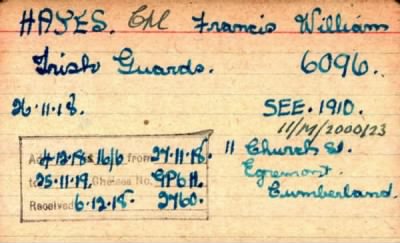 HAYES. CM Francis William
Irish Guards. 6096.
26.11.18. SEE. 1910.
11/M/2000/23
4.12.18 16/6 from 27.11.18. 11 Church St.
to 25.11.19. Cheques No. GP6H. Egremont.
Received 6.12.18. 2760. Cumberland.